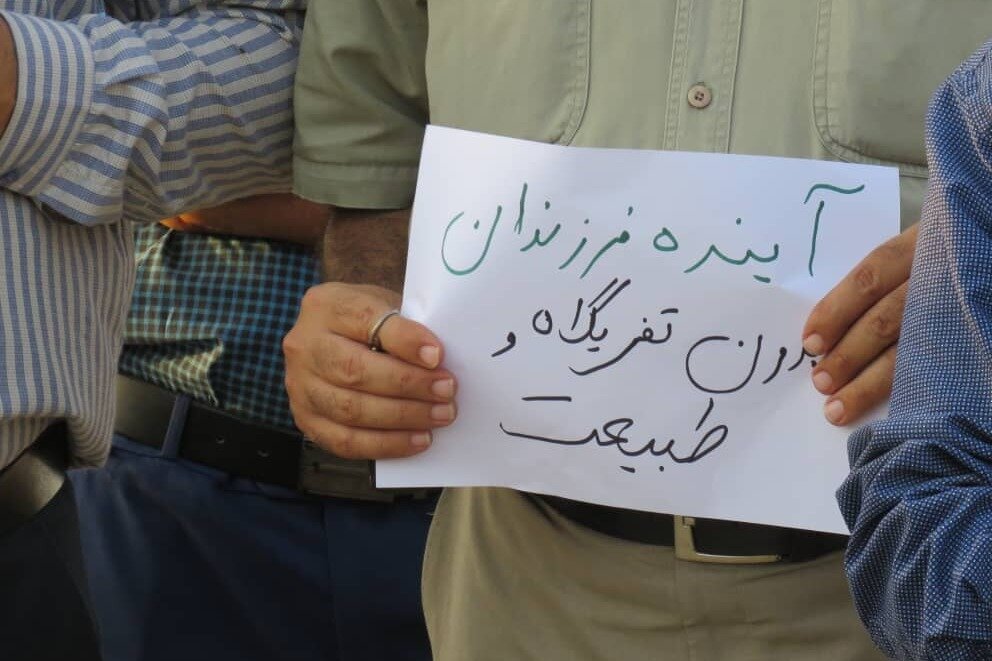 آینده فرزندان
بدون تفریگاه و
طبیعت